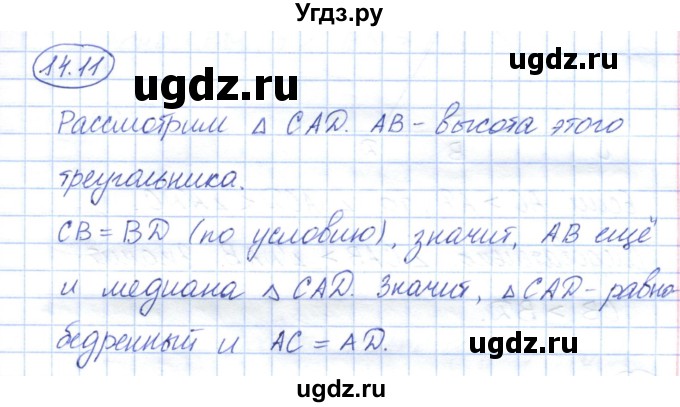 Угдз.ру
14.11
ugdz.ru
ugdz.ru
Рассмотрим △ CAD. AB - высота этого
треугольника.
CB = BD (по условию), значит, AB ещё
и медиана △ CAD. Значит, △ CAD - равно
бедренный и AC = AD.
ugdz.ru
ugdz.ru
ugdz.ru